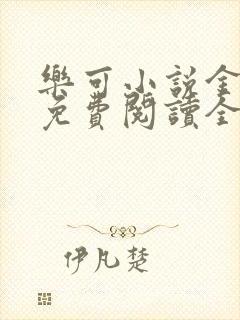 樂可小說全
免費閱讀全
伊凡楚